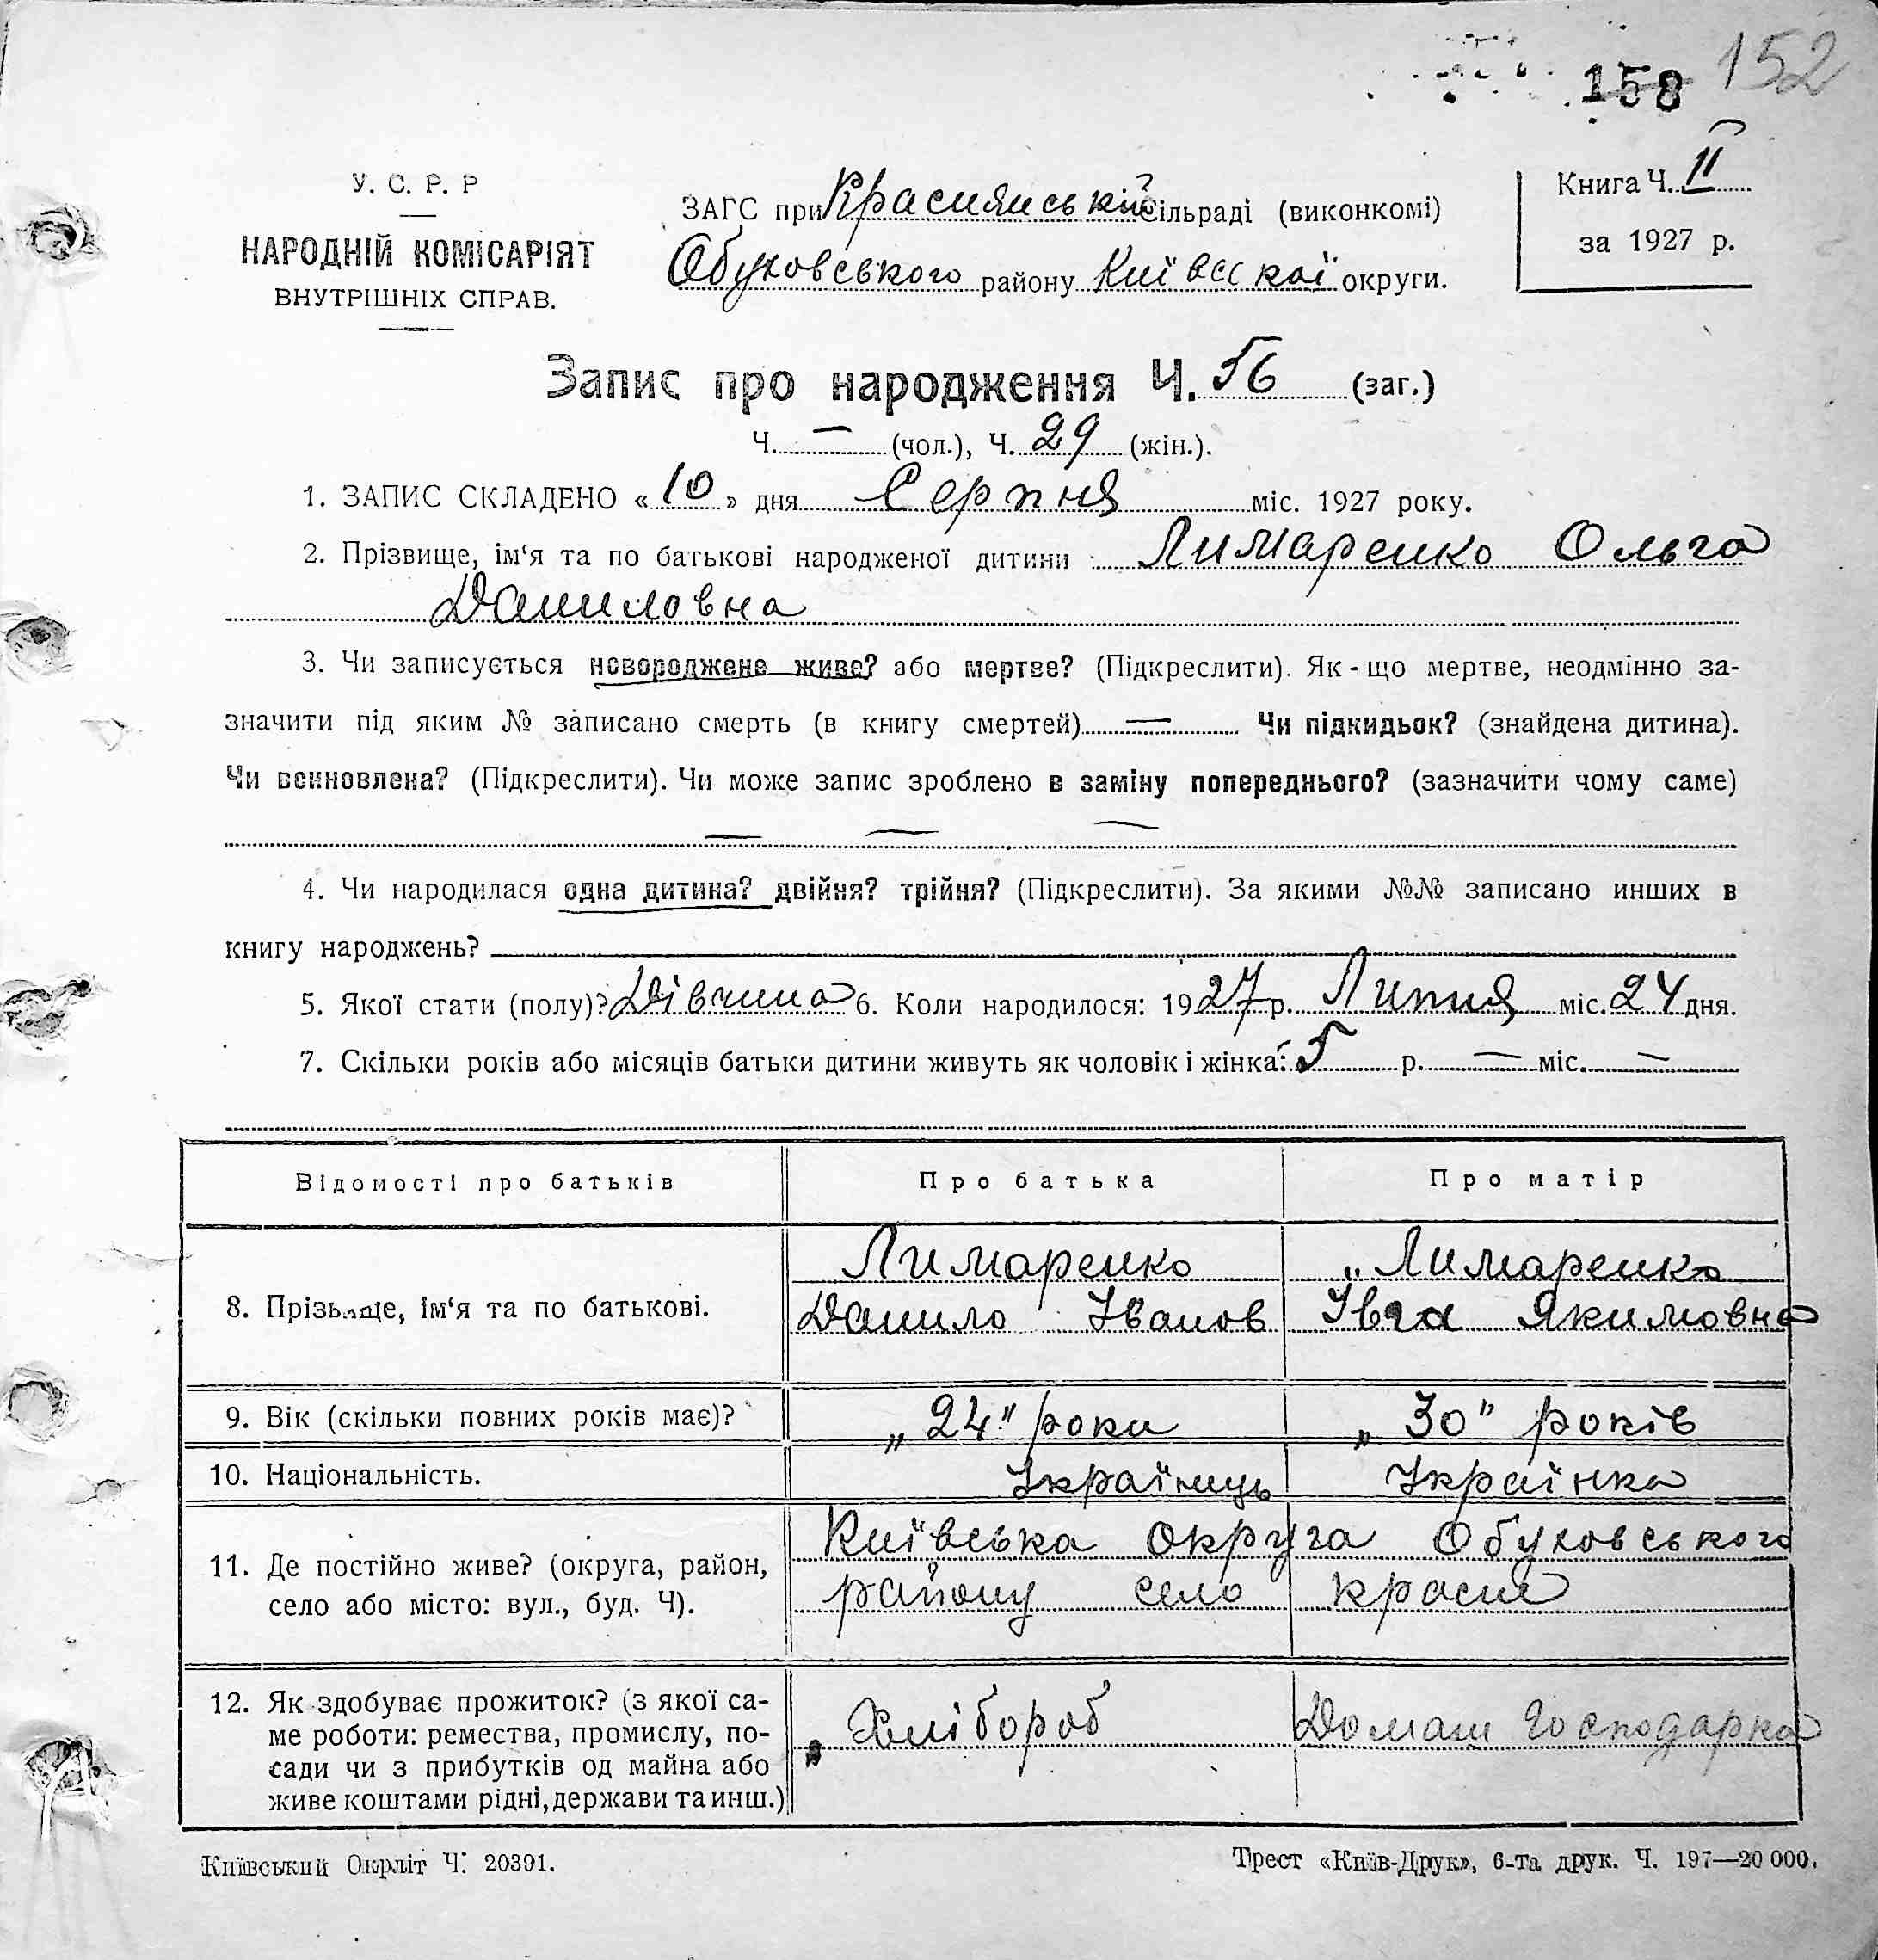 158 152
У. С. Р. Р
НАРОДНІЙ КОМІСАРІЯТ
ВНУТРІШНІХ СПРАВ.
ЗАГС при Краснянській сільраді (виконкомі)
Обуховського району Київської округи.
Книга Ч. II
за 1927 р.
Запис про народження Ч. 56 (заг.)
Ч. — (чол.), Ч. 29 (жін.).
1. ЗАПИС СКЛАДЕНО «10» дня Серпня міс. 1927 року.
2. Прізвище, ім‘я та по батькові народженої дитини Лимаренко Ольга
Даниловна
3. Чи записується новороджене живе? або мертве? (Підкреслити). Як-що мертве, неодмінно за-
значити під яким № записано смерть (в книгу смертей) — Чи підкидьок? (знайдена дитина).
Чи всиновлена? (Підкреслити). Чи може запис зроблено в заміну попереднього? (зазначити чому саме)
— — —
4. Чи народилася одна дитина? двійня? трійня? (Підкреслити). За якими №№ записано инших в
книгу народжень?
5. Якої стати (полу)? Дівчина 6. Коли народилося: 1927 р. Липня міс. 24 дня.
7. Скільки років або місяців батьки дитини живуть як чоловік і жінка: 5 р. — міс. —
Відомості про батьків Про батька Про матір
8. Прізвище, ім‘я та по батькові.
Лимаренко
Данило Іванов
„Лимаренко
Ївга Якимовна
9. Вік (скільки повних років має)? „24“ роки „30“ років
10. Національність. Українець Українка
11. Де постійно живе? (округа, район,
село або місто: вул., буд. Ч).
Київська округа Обуховського
району село красне
12. Як здобуває прожиток? (з якої са-
ме роботи: ремества, промислу, по-
сади чи з прибутків од майна або
живе коштами рідні, держави та инш.)
„Хлібороб
Домаш Господарка
Київський Окрліт Ч. 20391.
Трест «Київ-Друк», 6-та друк. Ч. 197—20 000.